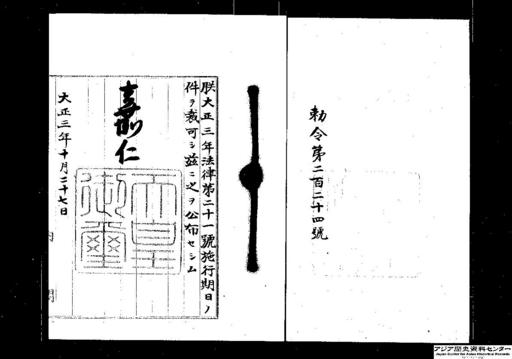 勅令第二百二十四號
朕大正三年法律第二十一號施行期日ノ
件ヲ裁可シ茲ニ之ヲ公布セシム
嘉仁
天皇
御璽
大正三年十月二十七日
内
閣
アジア歴史資料センター
Japan Center for Asian Historical Records